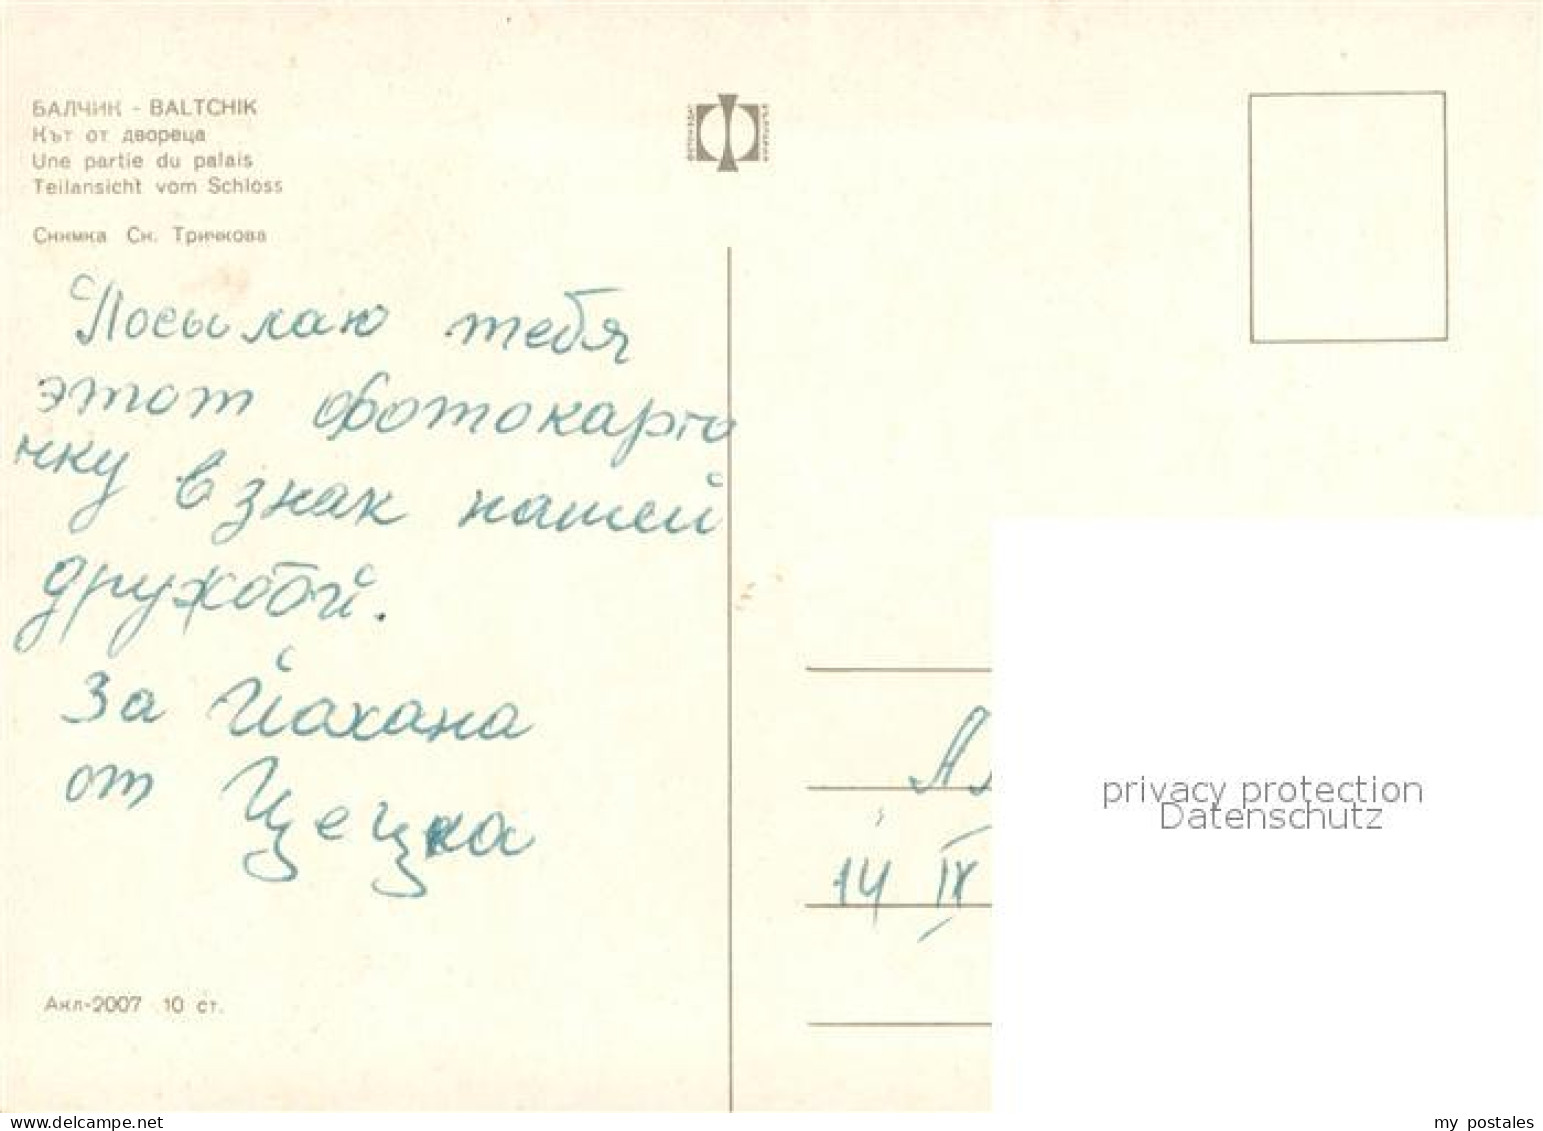 БАЛЧИК - BALTCHIK
Кът от двореца
Une partie du palais
Teilansicht vom Schloss
Снимка Сн. Тричкова
Посылаю тебя
этот фотокарти
чку в знак нашей
дружбой.
За Йохана
от Цецка
Акл-2007 10 ст.
14 IX
privacy protection
Datenschutz
my postales